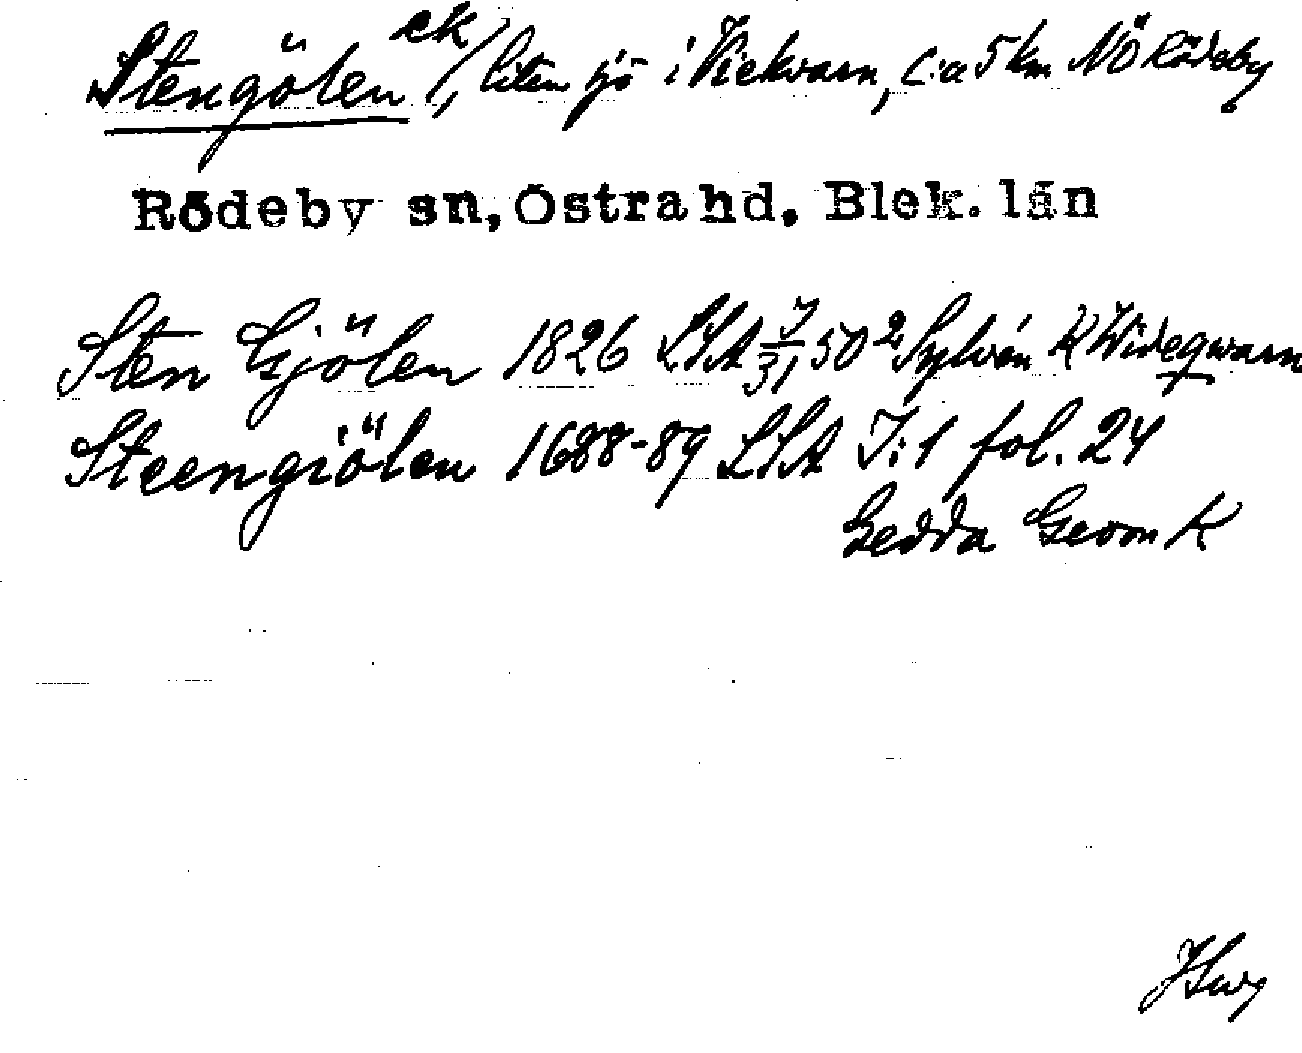 Stengölen ek/, liten sjö i Viekvarn, c:a 5 km NÖ Rödeby
Rödeby sn, Östra hd. Blek. län
Sten Gjölen 1826 LSA J/31, 50² Sylvén K Wideqwarn
Steengiölen 1688-89 LSA J:1 fol. 24
Gedda Geom K